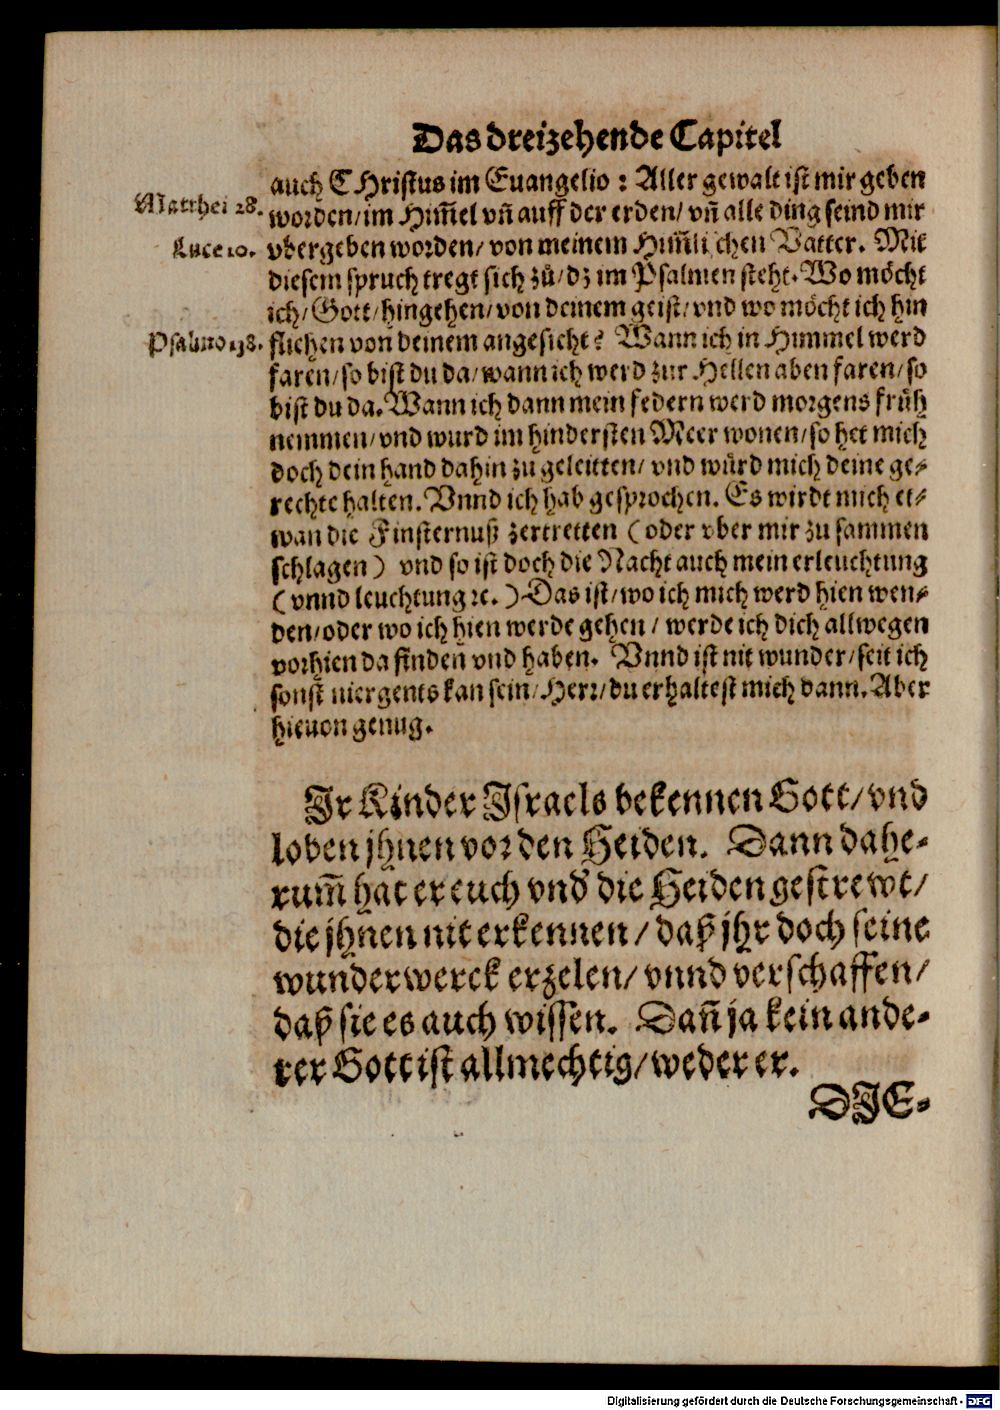 Das dreizehende Capitel
auch CHristus im Euangelio: Aller gewalt ist mir geben
Matthei 28.
worden/ im Him̃el vñ auff der erden/ vñ alle ding seind mir
Luce 10.
vbergeben worden/ von meinem Him̃lichen Vatter. Mit
diesem spruch tregt sich zů/ dz im Psalmen steht. Wo möcht
ich/ Gott/ hingehen/ von deinem geist/ vnd wo möcht ich hin
Psalmo 138.
fliehen von deinem angesicht? Wann ich in Himmel werd
faren/ so bist du da/ wann ich werd zur Hellen aben faren/ so
bist du da. Wann ich dann mein federn werd morgens früh
nemmen/ vnd wurd im hindersten Meer wonen/ so het mich
doch dein hand dahin zu geleitten/ vnd würd mich deine ge⸗
rechte halten. Vnnd ich hab gesprochen. Es wirdt mich et⸗
wan die Finsternuß zertretten (oder vber mir zu sammen
schlagen) vnd so ist doch die Nacht auch mein erleuchtung
(vnnd leuchtung ꝛc.) Das ist/ wo ich mich werd hien wen⸗
den/ oder wo ich hien werde gehen/ werde ich dich allwegen
vorhien da finden vnd haben. Vnnd ist nit wunder/ seit ich
sonst niergents kan sein/ Herr/ du erhaltest mich dann. Aber
hieuon genug.
Jr Kinder Jsraels bekennen Gott/ vnd
loben jhnen vor den Heiden. Dann dahe⸗
rum̃ hat er euch vnd die Heiden gestrewt/
die jhnen nit erkennen/ daß jhr doch seine
wunderwerck erzelen/ vnnd verschaffen/
daß sie es auch wissen. Dañ ja kein ande⸗
rer Gott ist allmechtig/ weder er.
DJE⸗
Digitalisierung gefördert durch die Deutsche Forschungsgemeinschaft - DFG